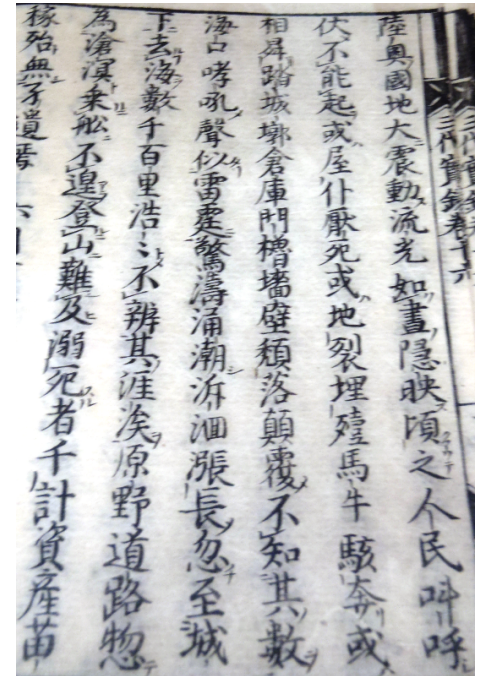 三代實錄卷十六
陸奧國地大震動流光如晝隱映頃之人民叫呼
伏不能起或屋仆壓死或地裂埋殪馬牛駭奔或
相昇踏城墎倉庫門櫓墻壁頽落顛覆不知其數
海口哮吼聲似雷霆驚濤涌潮泝洄漲長忽至城
下去海數千百里浩〻不辨其涯涘原野道路惣
為滄溟乗舩不遑登山難及溺死者千計資産苗
稼殆無孑遺焉 六月